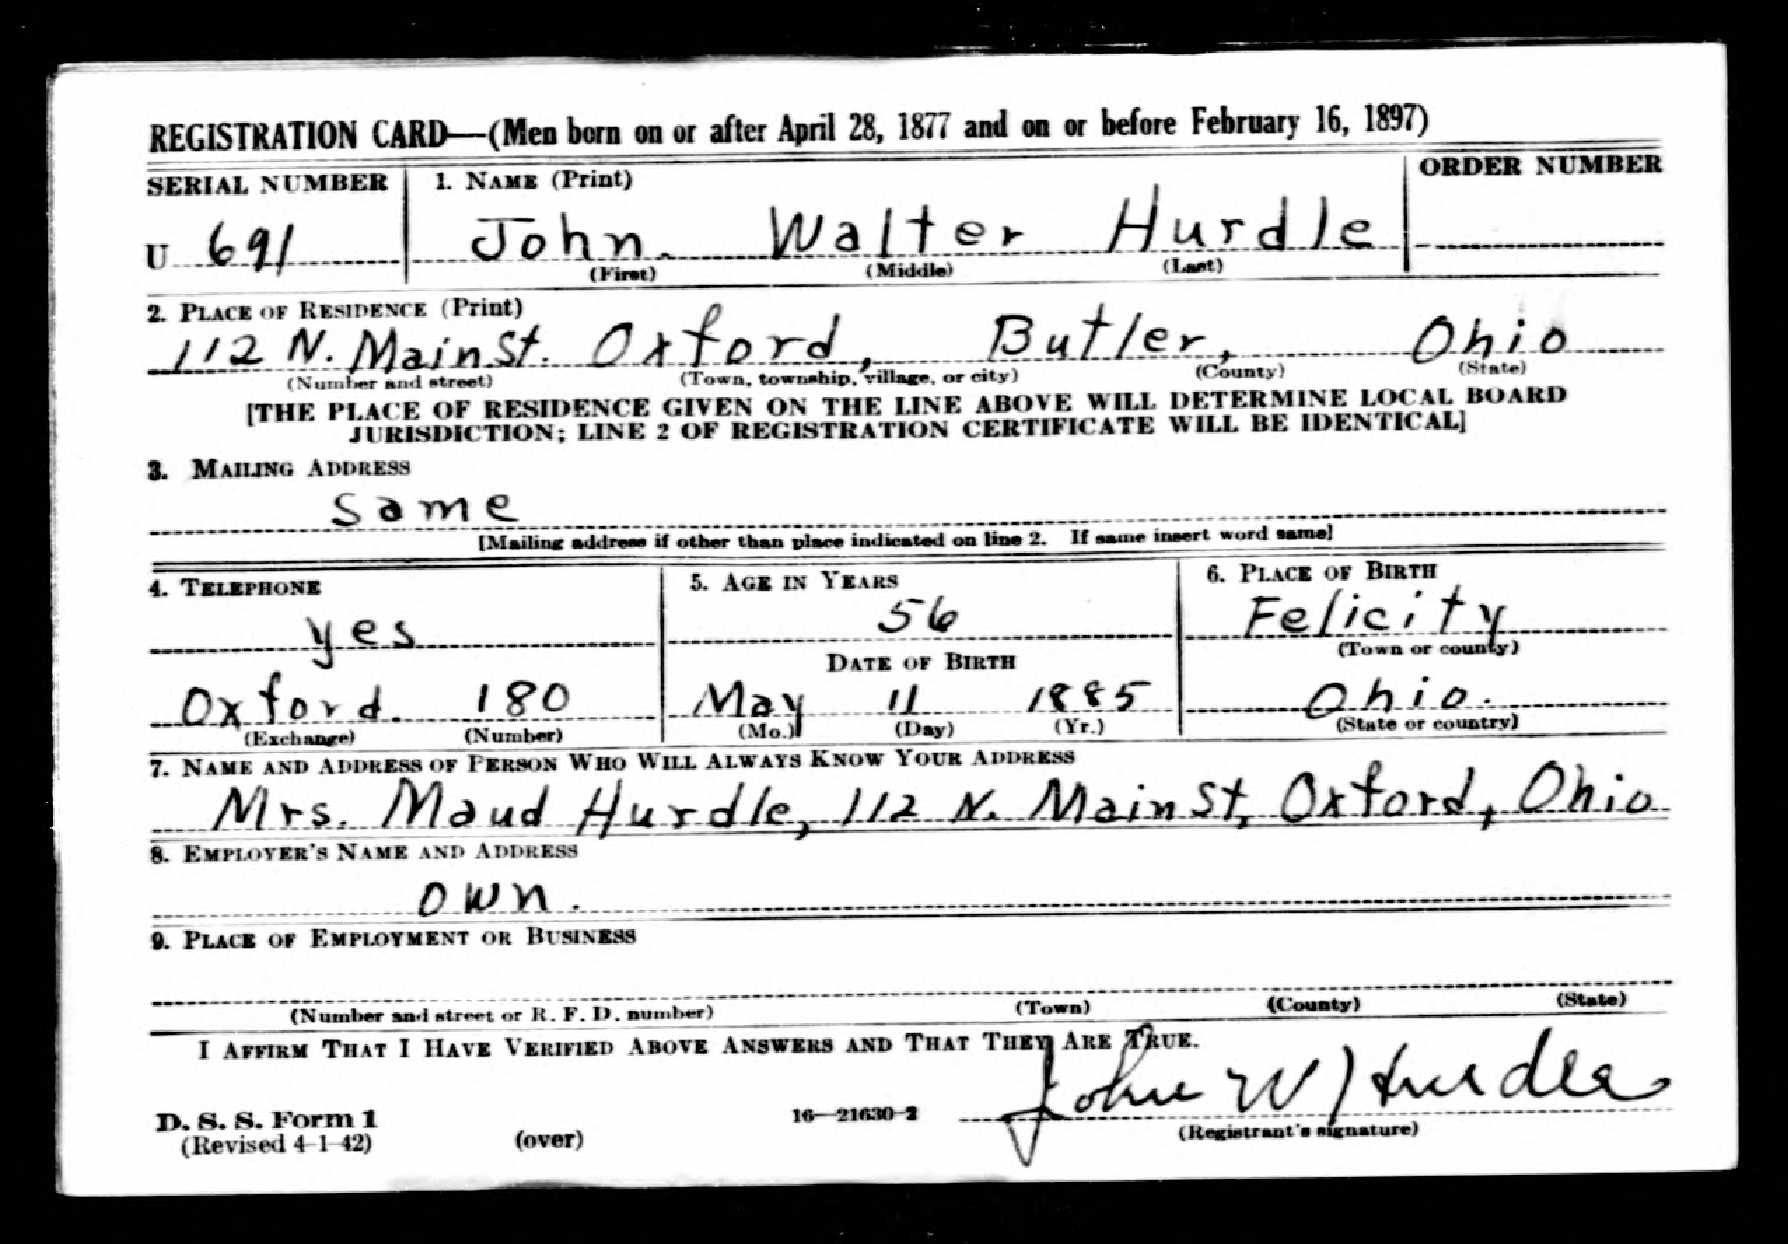 REGISTRATION CARD—(Men born on or after April 28, 1877 and on or before February 16, 1897)
SERIAL NUMBER 1. NAME (Print) ORDER NUMBER
U 691 John Walter Hurdle
(First) (Middle) (Last)
2. PLACE OF RESIDENCE (Print)
112 N. Main St. Oxford, Butler, Ohio
(Number and street) (Town, township, village, or city) (County) (State)
[THE PLACE OF RESIDENCE GIVEN ON THE LINE ABOVE WILL DETERMINE LOCAL BOARD
JURISDICTION; LINE 2 OF REGISTRATION CERTIFICATE WILL BE IDENTICAL]
3. MAILING ADDRESS
Same
[Mailing address if other than place indicated on line 2. If same insert word same]
4. TELEPHONE 5. AGE IN YEARS 6. PLACE OF BIRTH
yes 56 Felicity
DATE OF BIRTH (Town or county)
Oxford 180 May 11 1885 Ohio.
(Exchange) (Number) (Mo.) (Day) (Yr.) (State or country)
7. NAME AND ADDRESS OF PERSON WHO WILL ALWAYS KNOW YOUR ADDRESS
Mrs. Maud Hurdle, 112 N. Main St, Oxford, Ohio
8. EMPLOYER'S NAME AND ADDRESS
own.
9. PLACE OF EMPLOYMENT OR BUSINESS
(Number and street or R. F. D. number) (Town) (County) (State)
I AFFIRM THAT I HAVE VERIFIED ABOVE ANSWERS AND THAT THEY ARE TRUE.
John W Hurdle
D. S. S. Form 1 16—21630-2
(Revised 4-1-42) (over) (Registrant's signature)